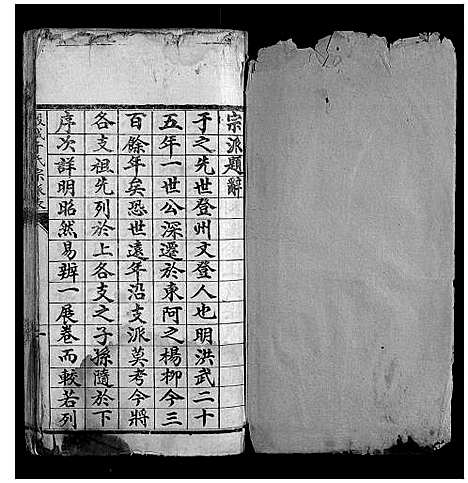 宗派題辭
于之先世登州文登人也明洪武二十
五年一世公深遷於東阿之楊柳今三
百餘年矣恐世遠年沿支派莫考今將
各支祖先列於上各支之子孫隨於下
序次詳明昭然易辨一展卷而較若列
氏宗派